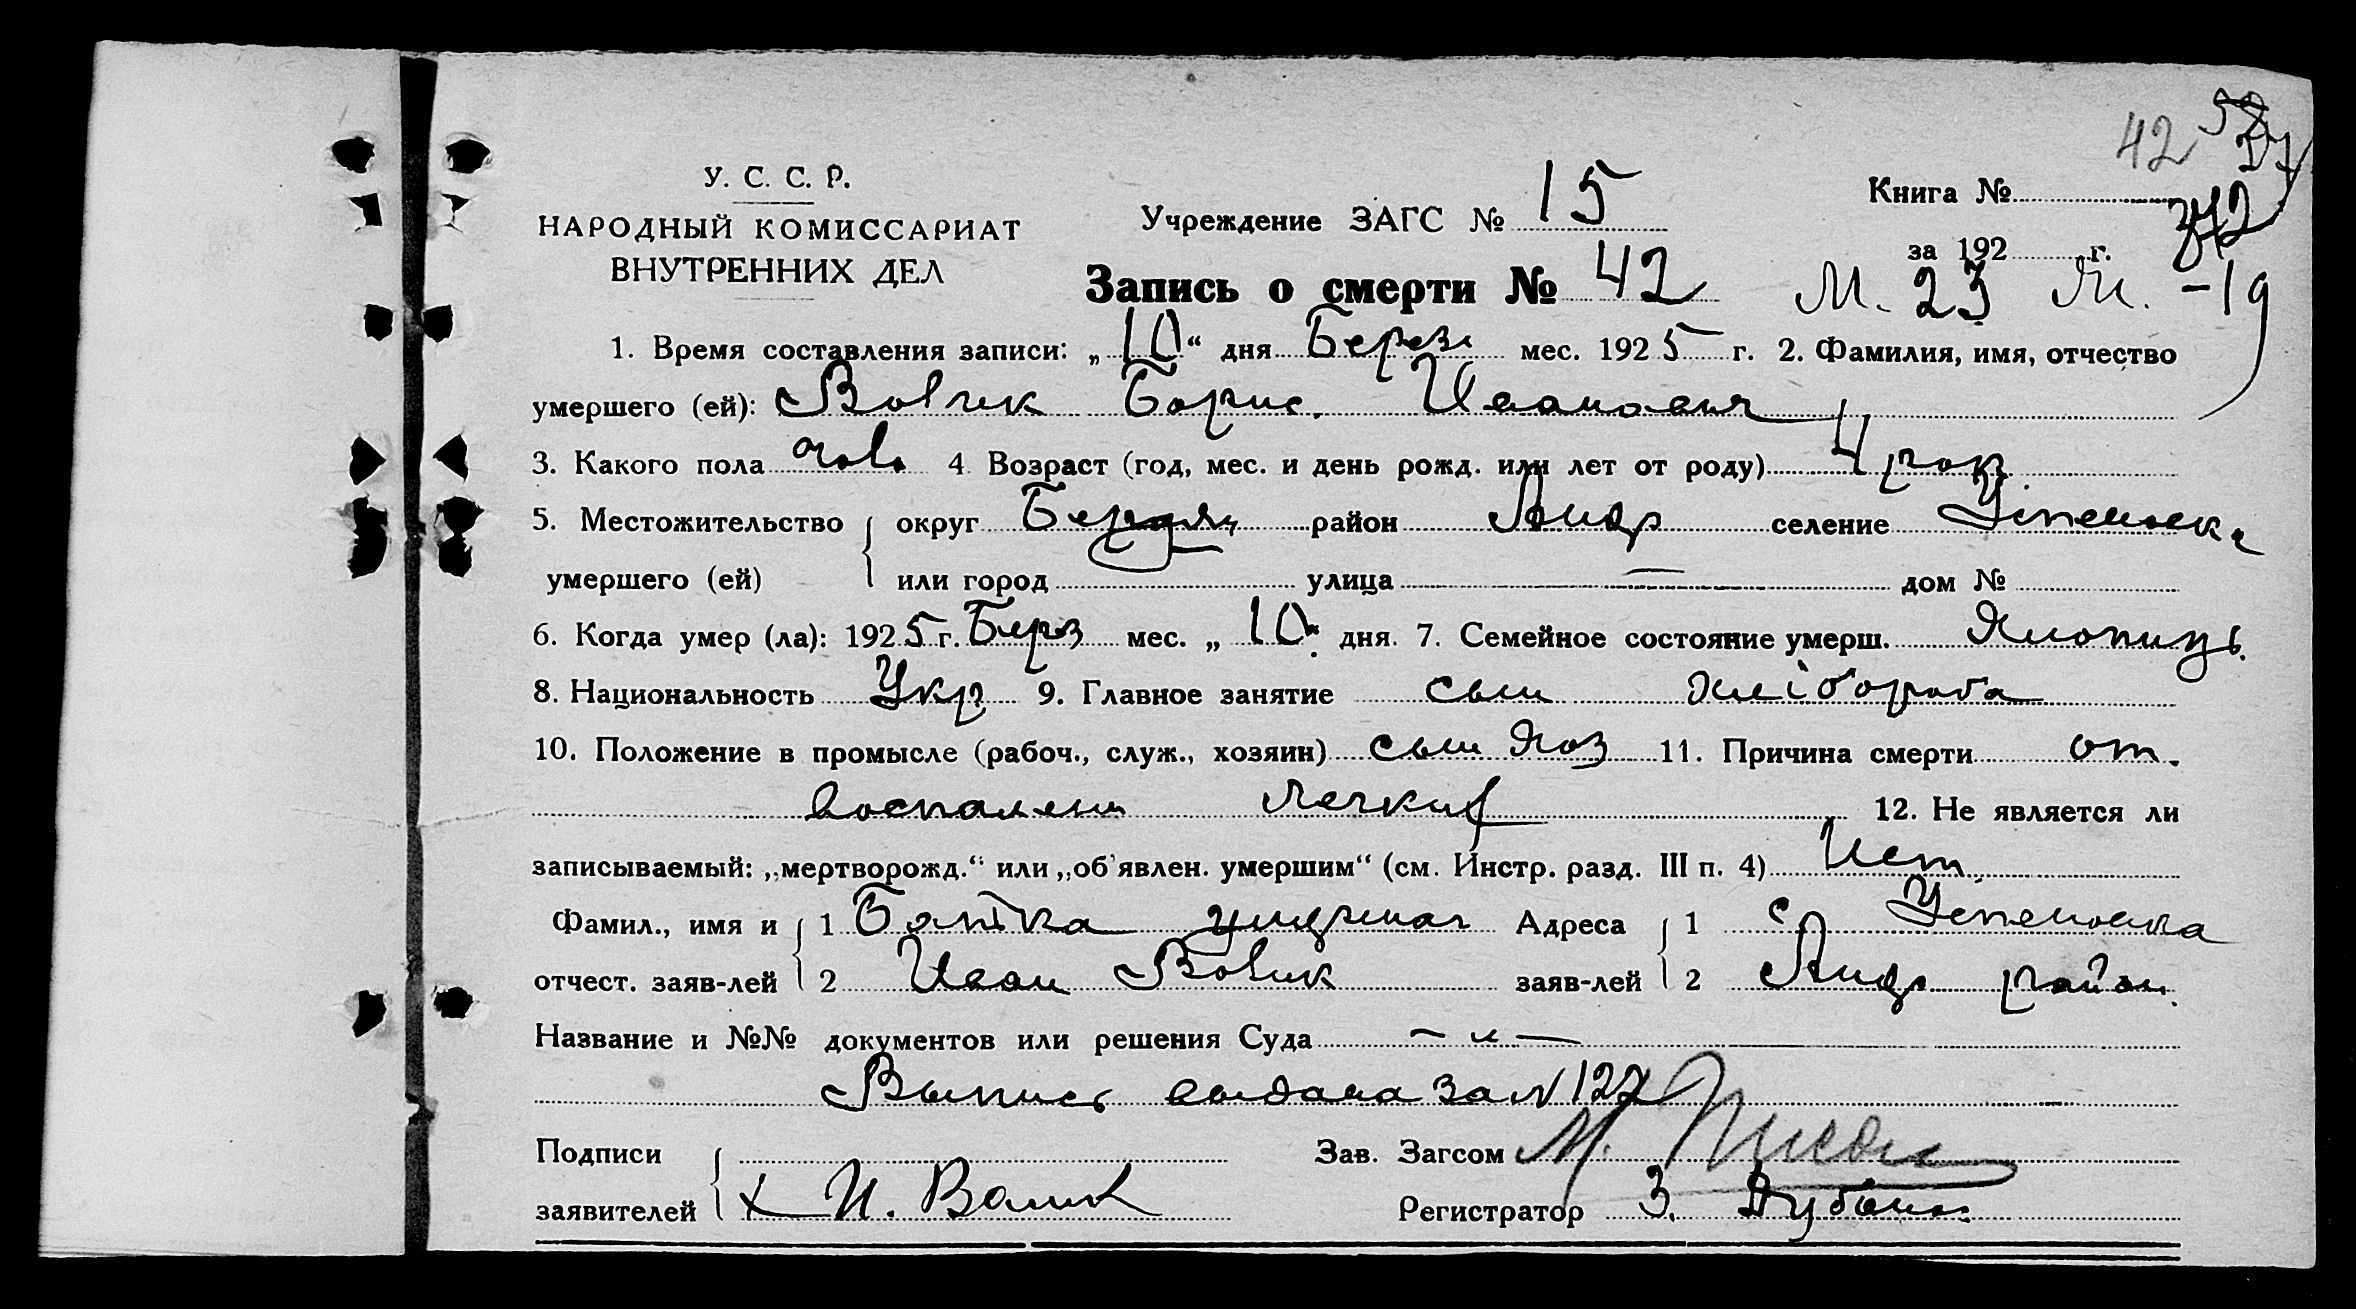 42 58
У. С. С. Р.
НАРОДНЫЙ КОМИССАРИАТ
ВНУТРЕННИХ ДЕЛ
Учреждение ЗАГС № 15
Книга №
за 192 г.
Запись о смерти № 42 М. 23 Ж. - 19
1. Время составления записи: „10“ дня Берез мес. 1925 г. 2. Фамилия, имя, отчество
умершего (ей): Вовчик Борис Иванович
3. Какого пола чолов 4 Возраст (год, мес. и день рожд. или лет от роду) 4 рок.
5. Местожительство округ Бердян район Андр селение Успеновка
умершего (ей) или город улица — дом №
6. Когда умер (ла): 1925 г. Берз мес. „10“ дня. 7. Семейное состояние умерш. Хлопиць
8. Национальность Укр 9. Главное занятие сын хлібороба
10. Положение в промысле (рабоч., служ., хозяин) сын Хоз 11. Причина смерти от
воспалени легких 12. Не является ли
записываемый: „мертворожд.“ или „об'явлен. умершим“ (см. Инстр. разд. III п. 4) Нет
Фамил., имя и 1 Батка Адреса 1 с Успеновка
отчест. заяв-лей 2 Иван Вовчик заяв-лей 2 Андр район.
Название и №№ документов или решения Суда — „ —
Выпись выдана за № 127
Подписи Зав. Загсом М.
заявителей х И. Вовчик Регистратор З.